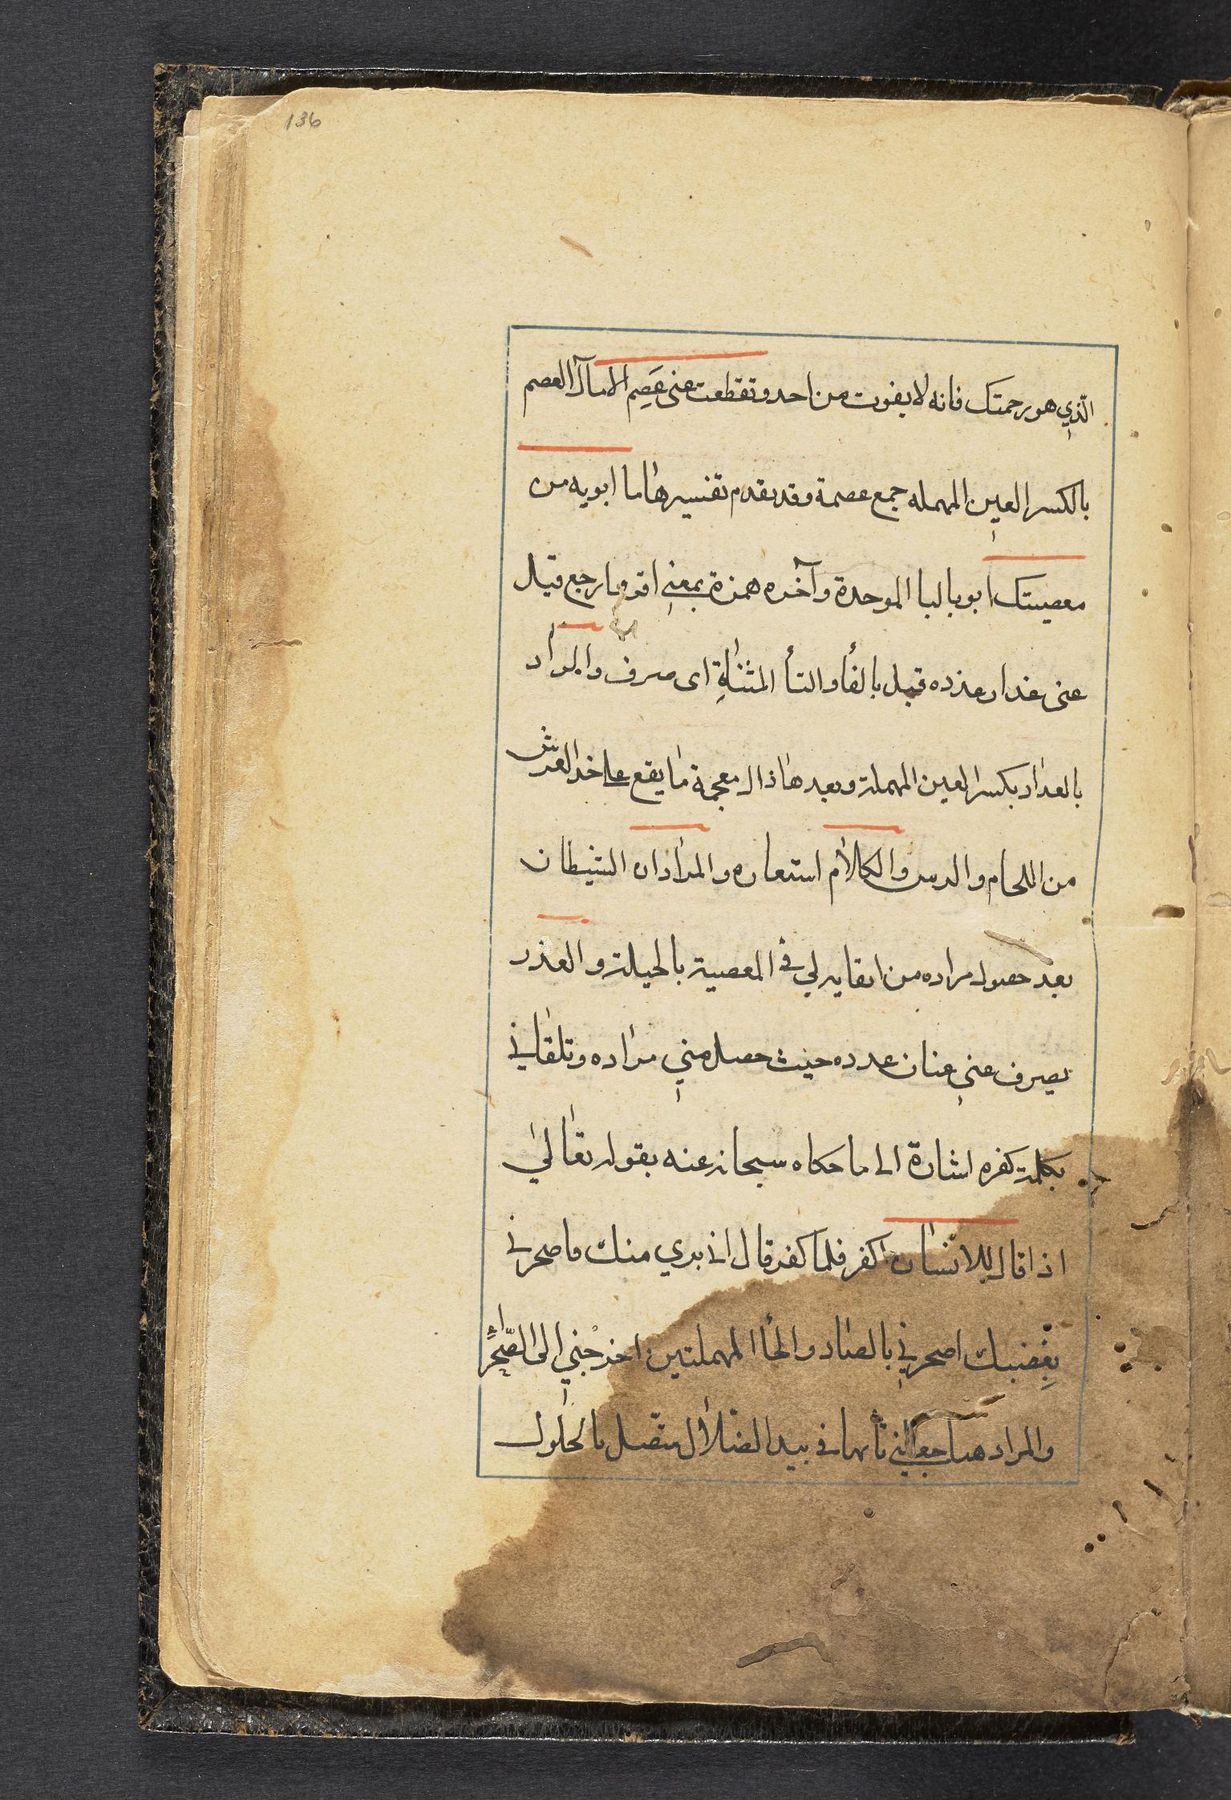 136
الّذي هو رحمتك فانه لا يفوت من احد وتقطعت عنى عَصِم الامال العصم
بالكسر العين المهمله جمع عصمة وقد تقدم تفسيرها ما ابويه من
معصيتك ابو بالبا الموحدة وآخره همزة بمعنى اقر وارجع قيل
عنى عذار عذره قبل بالفأ والتأ المثناة اى صرف والمراد
بالعذار بكسر العين المهملة وبعدها ذال معجمة ما يقع على خد الفرس
من اللجام والرسن والكلام استعاره والمراد ان الشيطان
بعد حصول مراده من ايقايه لي في المعصية بالحيلة والعذر
يصرف عني عنان عدده حيث حصل مني مراده وتلقاني
بكلمة كفره اشارة الى ما حكاه سبحانه عنه بقوله تعالىٰ
اذ قال للانسان اكفر فلما كفر قال انى بري منك فاصحرنى
بغضبك اصحرني بالصاد والحأ المهملتين اخرجني الى الصّحرآء
والمراد هنا جعلني تأيها في بيدا الضّلال متصل بالحلول